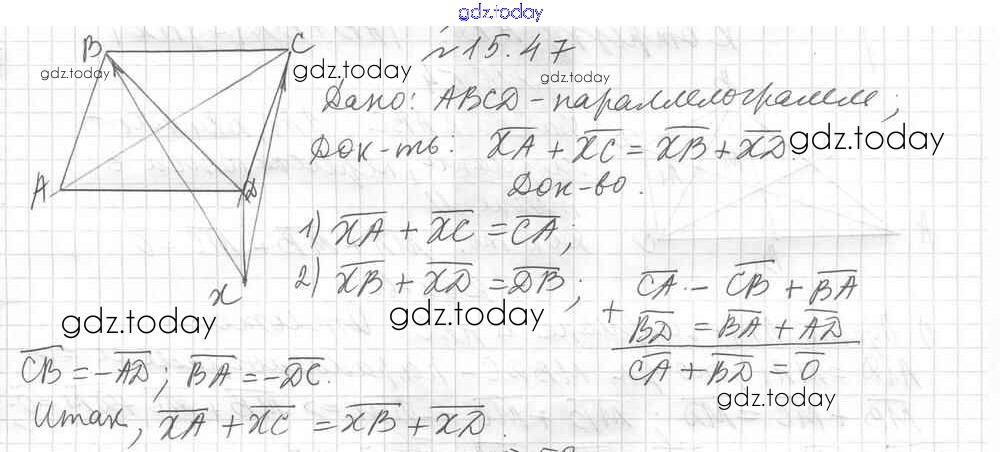 gdz.today
B C
A D
x
gdz.today
gdz.today
gdz.today
№15.47
Дано: ABCD - параллелограмм;
Док-ть: \overline{XA} + \overline{XC} = \overline{XB} + \overline{XD}.
gdz.today
Док-во.
1) \overline{XA} + \overline{XC} = \overline{CA};
2) \overline{XB} + \overline{XD} = \overline{DB};
gdz.today
gdz.today
\overline{CA} - \overline{CB} + \overline{BA}
+ \overline{BD} = \overline{BA} + \overline{AD}
\overline{CA} + \overline{BD} = \overline{0}
gdz.today
\overline{CB} = -\overline{AD}; \overline{BA} = -\overline{DC}.
Итак, \overline{XA} + \overline{XC} = \overline{XB} + \overline{XD}.